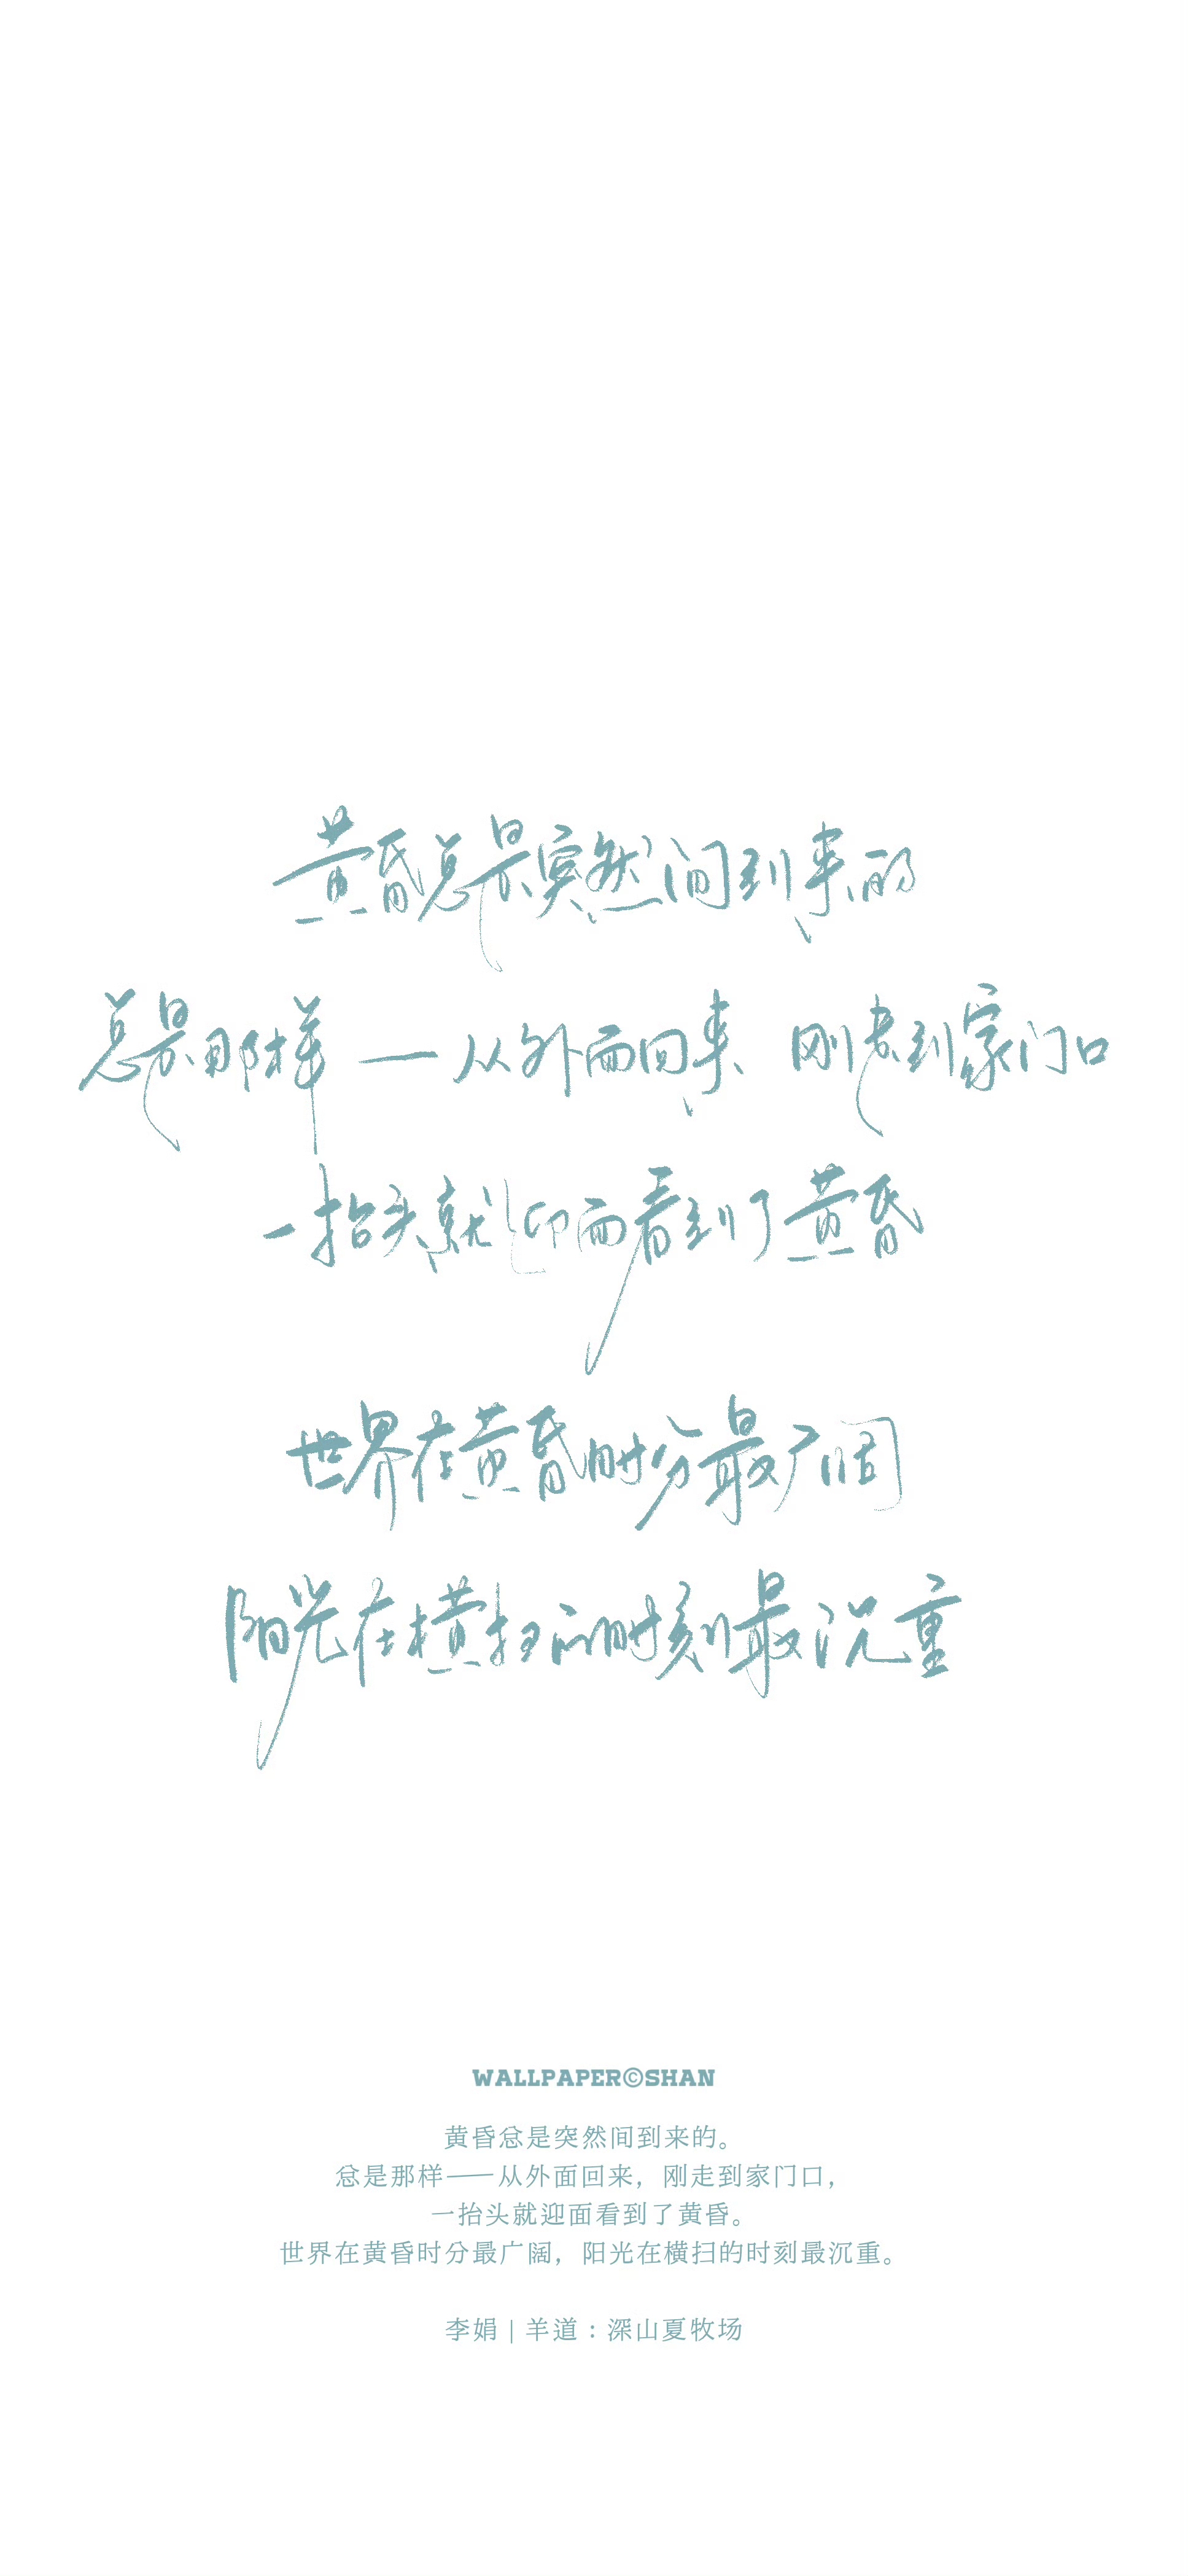 黄昏总是突然间到来的
总是那样 — 从外面回来 刚走到家门口
一抬头就迎面看到了黄昏
世界在黄昏时分最广阔
阳光在横扫的时刻最沉重
WALLPAPER©SHAN
黄昏总是突然间到来的。
总是那样——从外面回来，刚走到家门口，
一抬头就迎面看到了黄昏。
世界在黄昏时分最广阔，阳光在横扫的时刻最沉重。
李娟 | 羊道：深山夏牧场